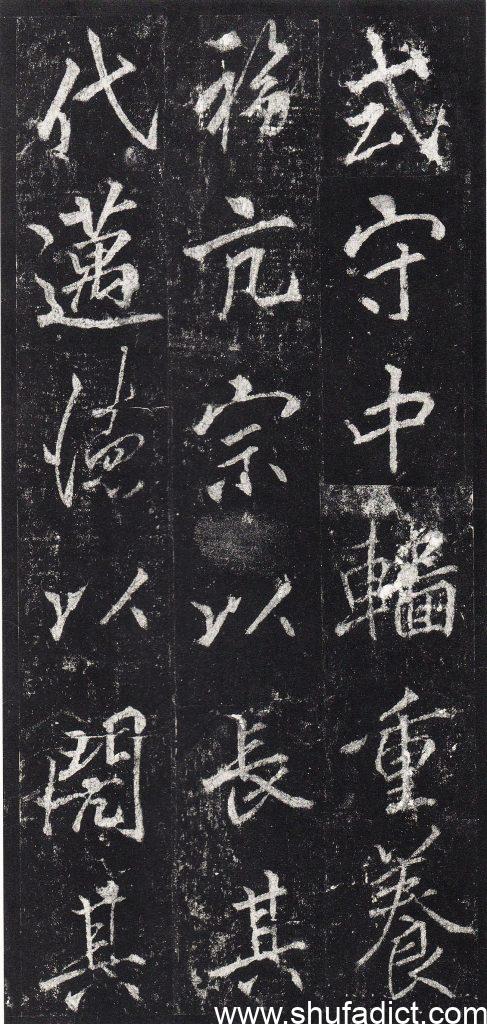 或守中輜重養
福亢宗以長其
代邁德以閱其
www.shufadict.com